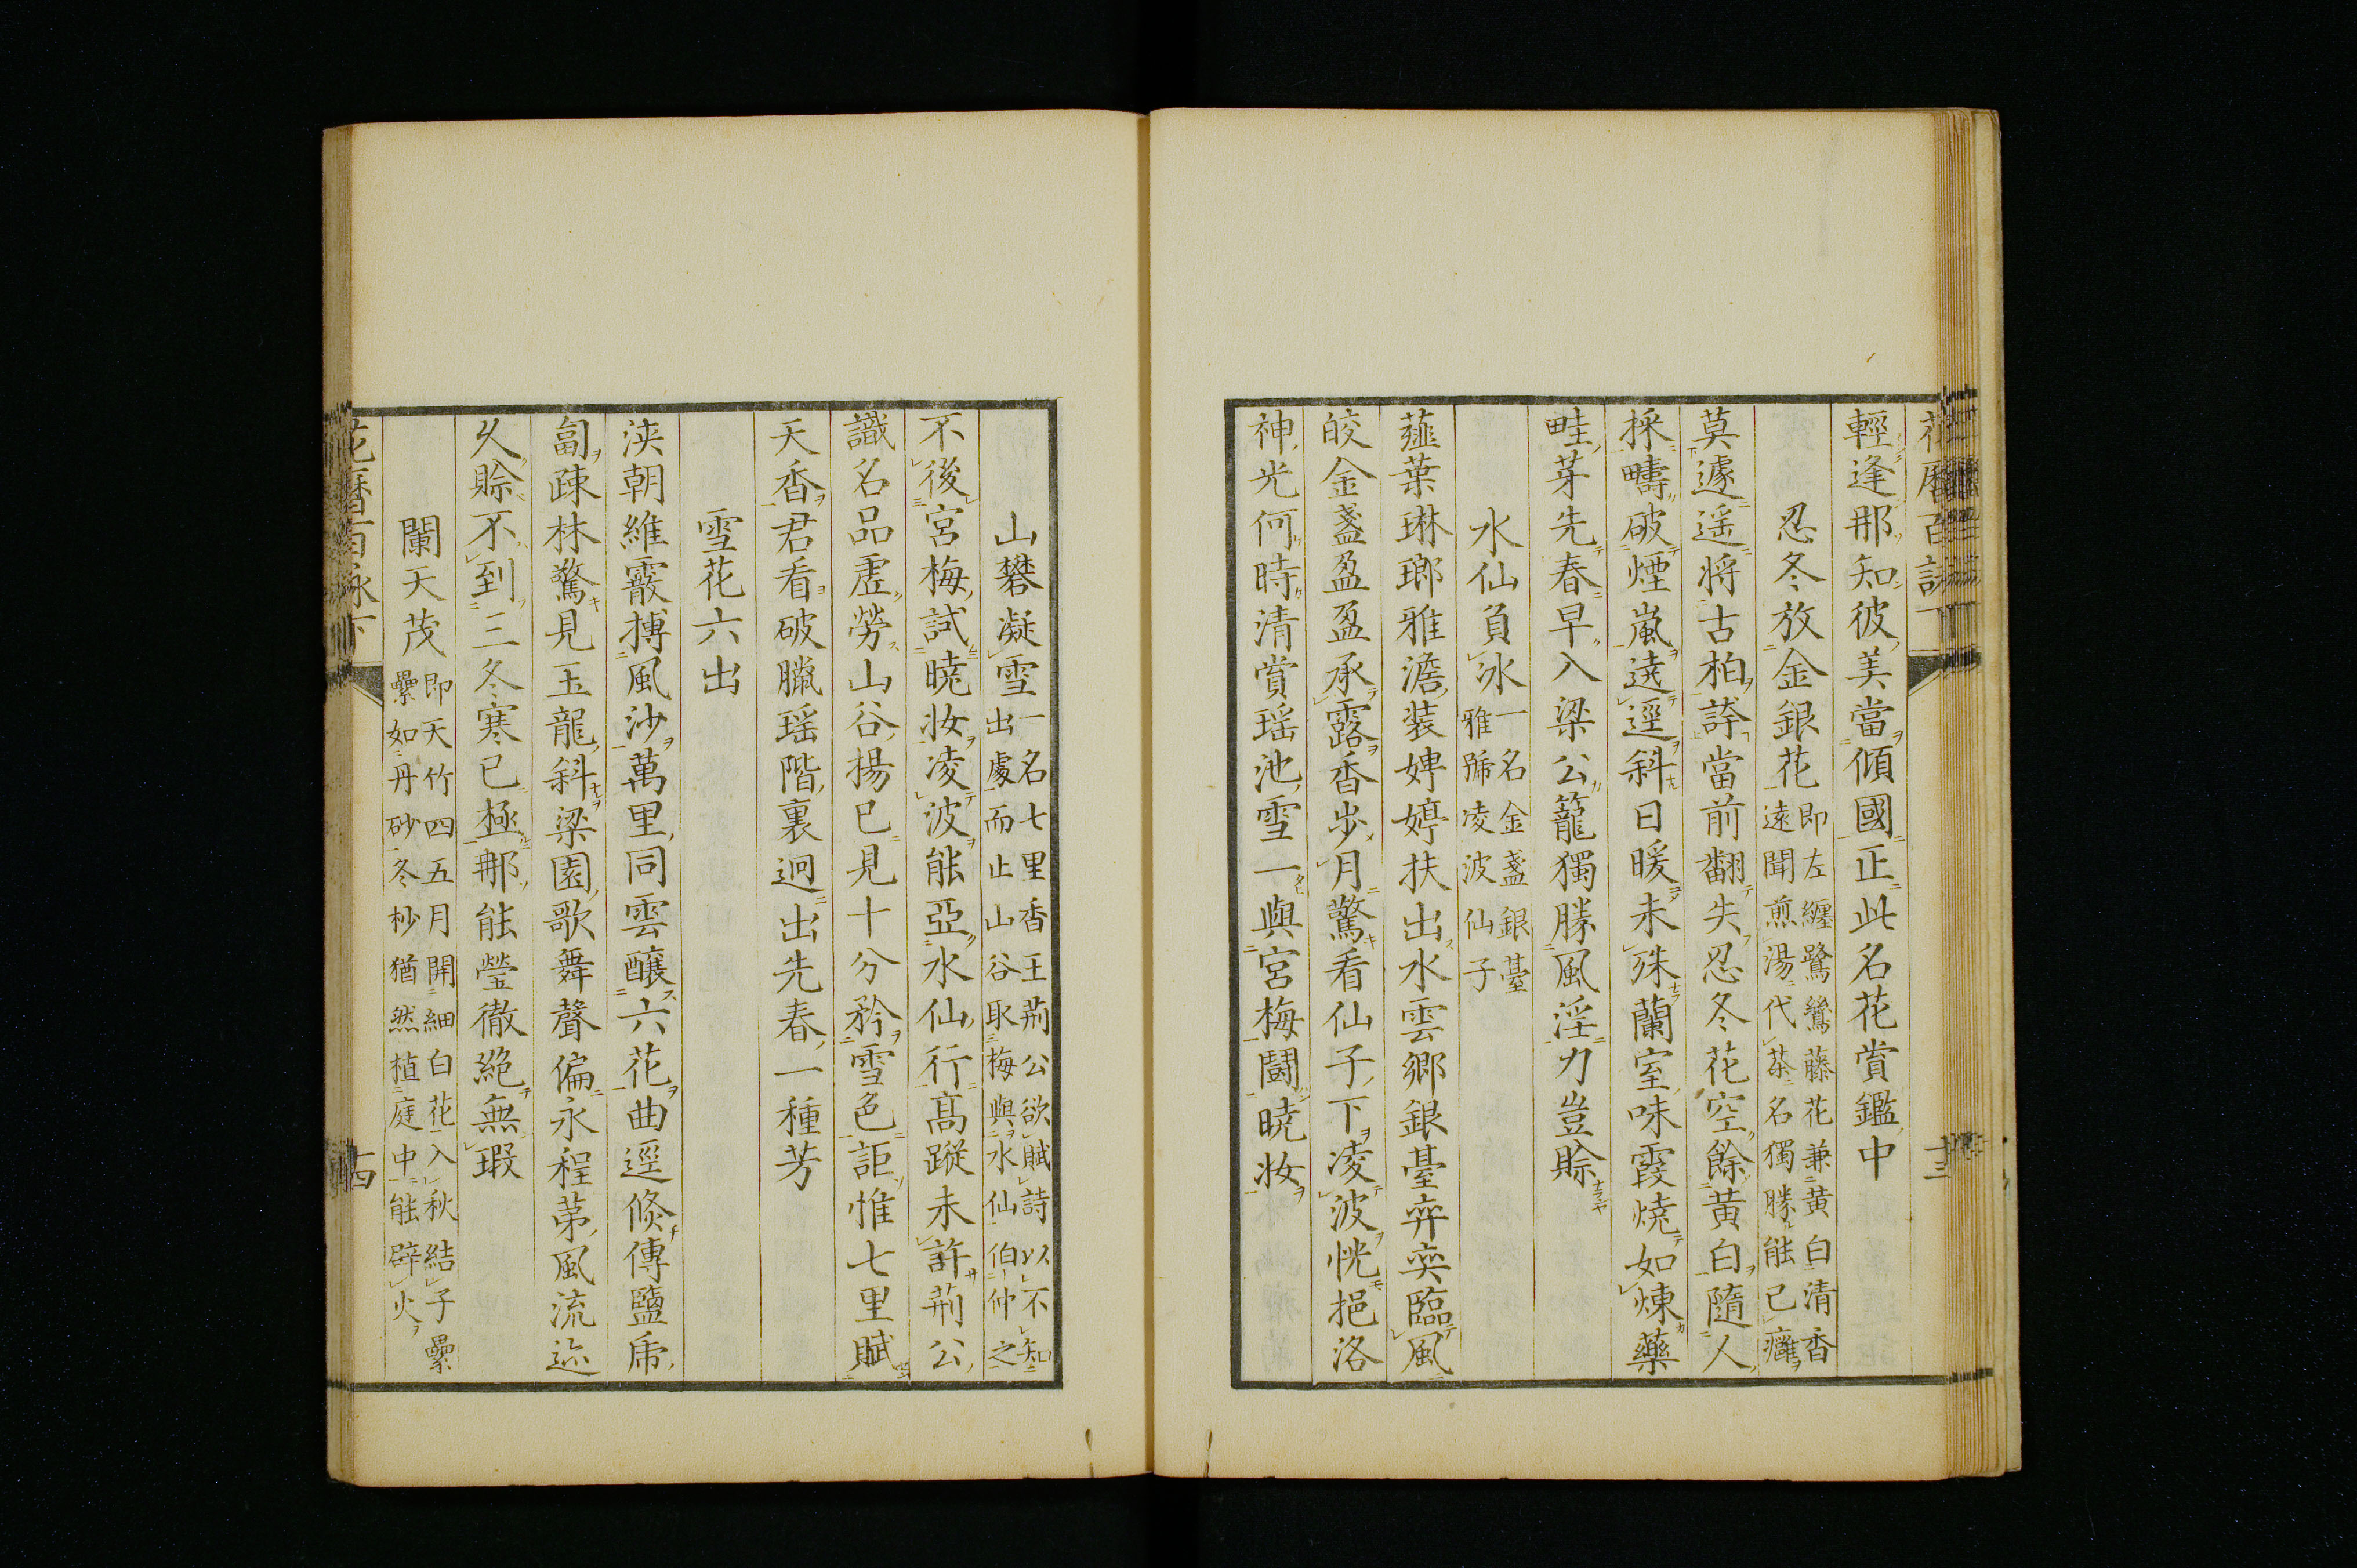 輕逢那知彼美當傾國正此名花賞鑑中
忍冬放金銀花
即左纏鷺鷥藤花兼黄白清香
遠聞煎湯代茶名獨勝能已癰
莫遽遥将古柏誇當前翻失忍冬花空餘黄白隨人
採疇破煙嵐遶逕斜日暖未殊蘭室味霞燒如煉藥
畦芽先春早入梁公籠獨勝風淫力豈賒
水仙負冰
一名金盞銀臺
雅號凌波仙子
薤葉琳瑯雅澹装娉婷扶出水雲鄉銀臺弈奕臨風
皎金盞盈盈承露香步月驚看仙子下凌波恍挹洛
神光何時清賞瑶池雪一與宮梅鬪曉妝
山礬凝雪
一名七里香王荊公欲賦詩以不知
出處而止山谷取梅與水仙伯仲之
不後宮梅試曉妝凌波能亞水仙行髙蹤未許荊公
識名品虚勞山谷揚已見十分矜雪色詎惟七里賦
天香君看破臘瑶階裏迥出先春一種芳
雪花六出
浹朝維霰搏風沙萬里同雲釀六花曲逕倏傳鹽乕
匐疎林驚見玉龍斜梁園歌舞聲偏永程苐風流迹
乆賒不到三冬寒已極那能瑩徹絶無瑕
闌天茂
即天竹四五月開細白花入秋結子纍
纍如丹砂冬杪猶然植庭中能辟火
花曆百詠下
十四